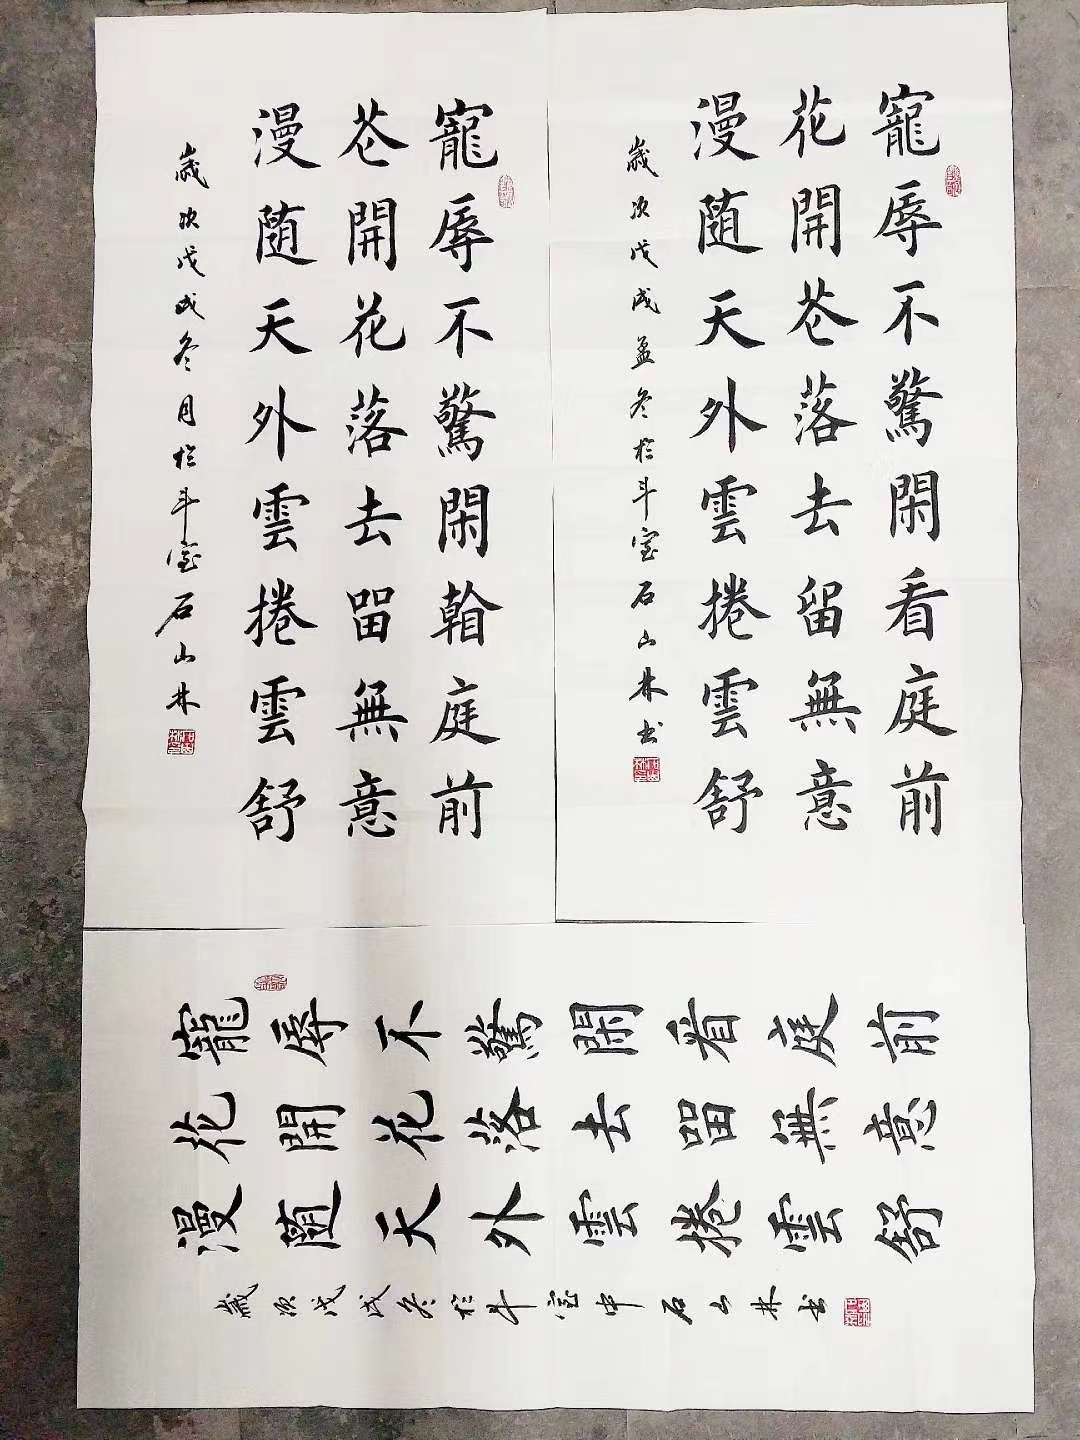 寵辱不驚閑看庭前
花開芲落去留無意
漫随天外雲捲雲舒
歲次戊戌孟冬於斗室石山林书
寵辱不驚閑看庭前
芲開花落去㽞無意
漫随天外雲捲雲舒
歲次戊戌冬月於斗室石山林
寵辱不驚閑看庭前
花開花落去㽞無意
漫随天外雲捲雲舒
歲次戊戌冬於斗室中石山林书